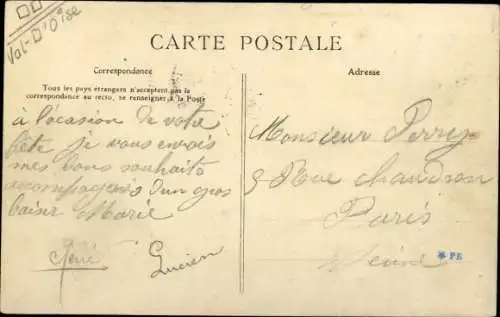 Val-D'Oise
CARTE POSTALE
Correspondance
Tous les pays étrangers n'acceptent pas la
correspondance au recto, se renseigner à la Poste
à l'ocasion de votre
fête je vous envois
mes bons souhaits
accompagnés d'un gros
baiser Marie
René
Lucien
Adresse
Monsieur Perry
9 Rue chaudron
Paris
Seine
*PE